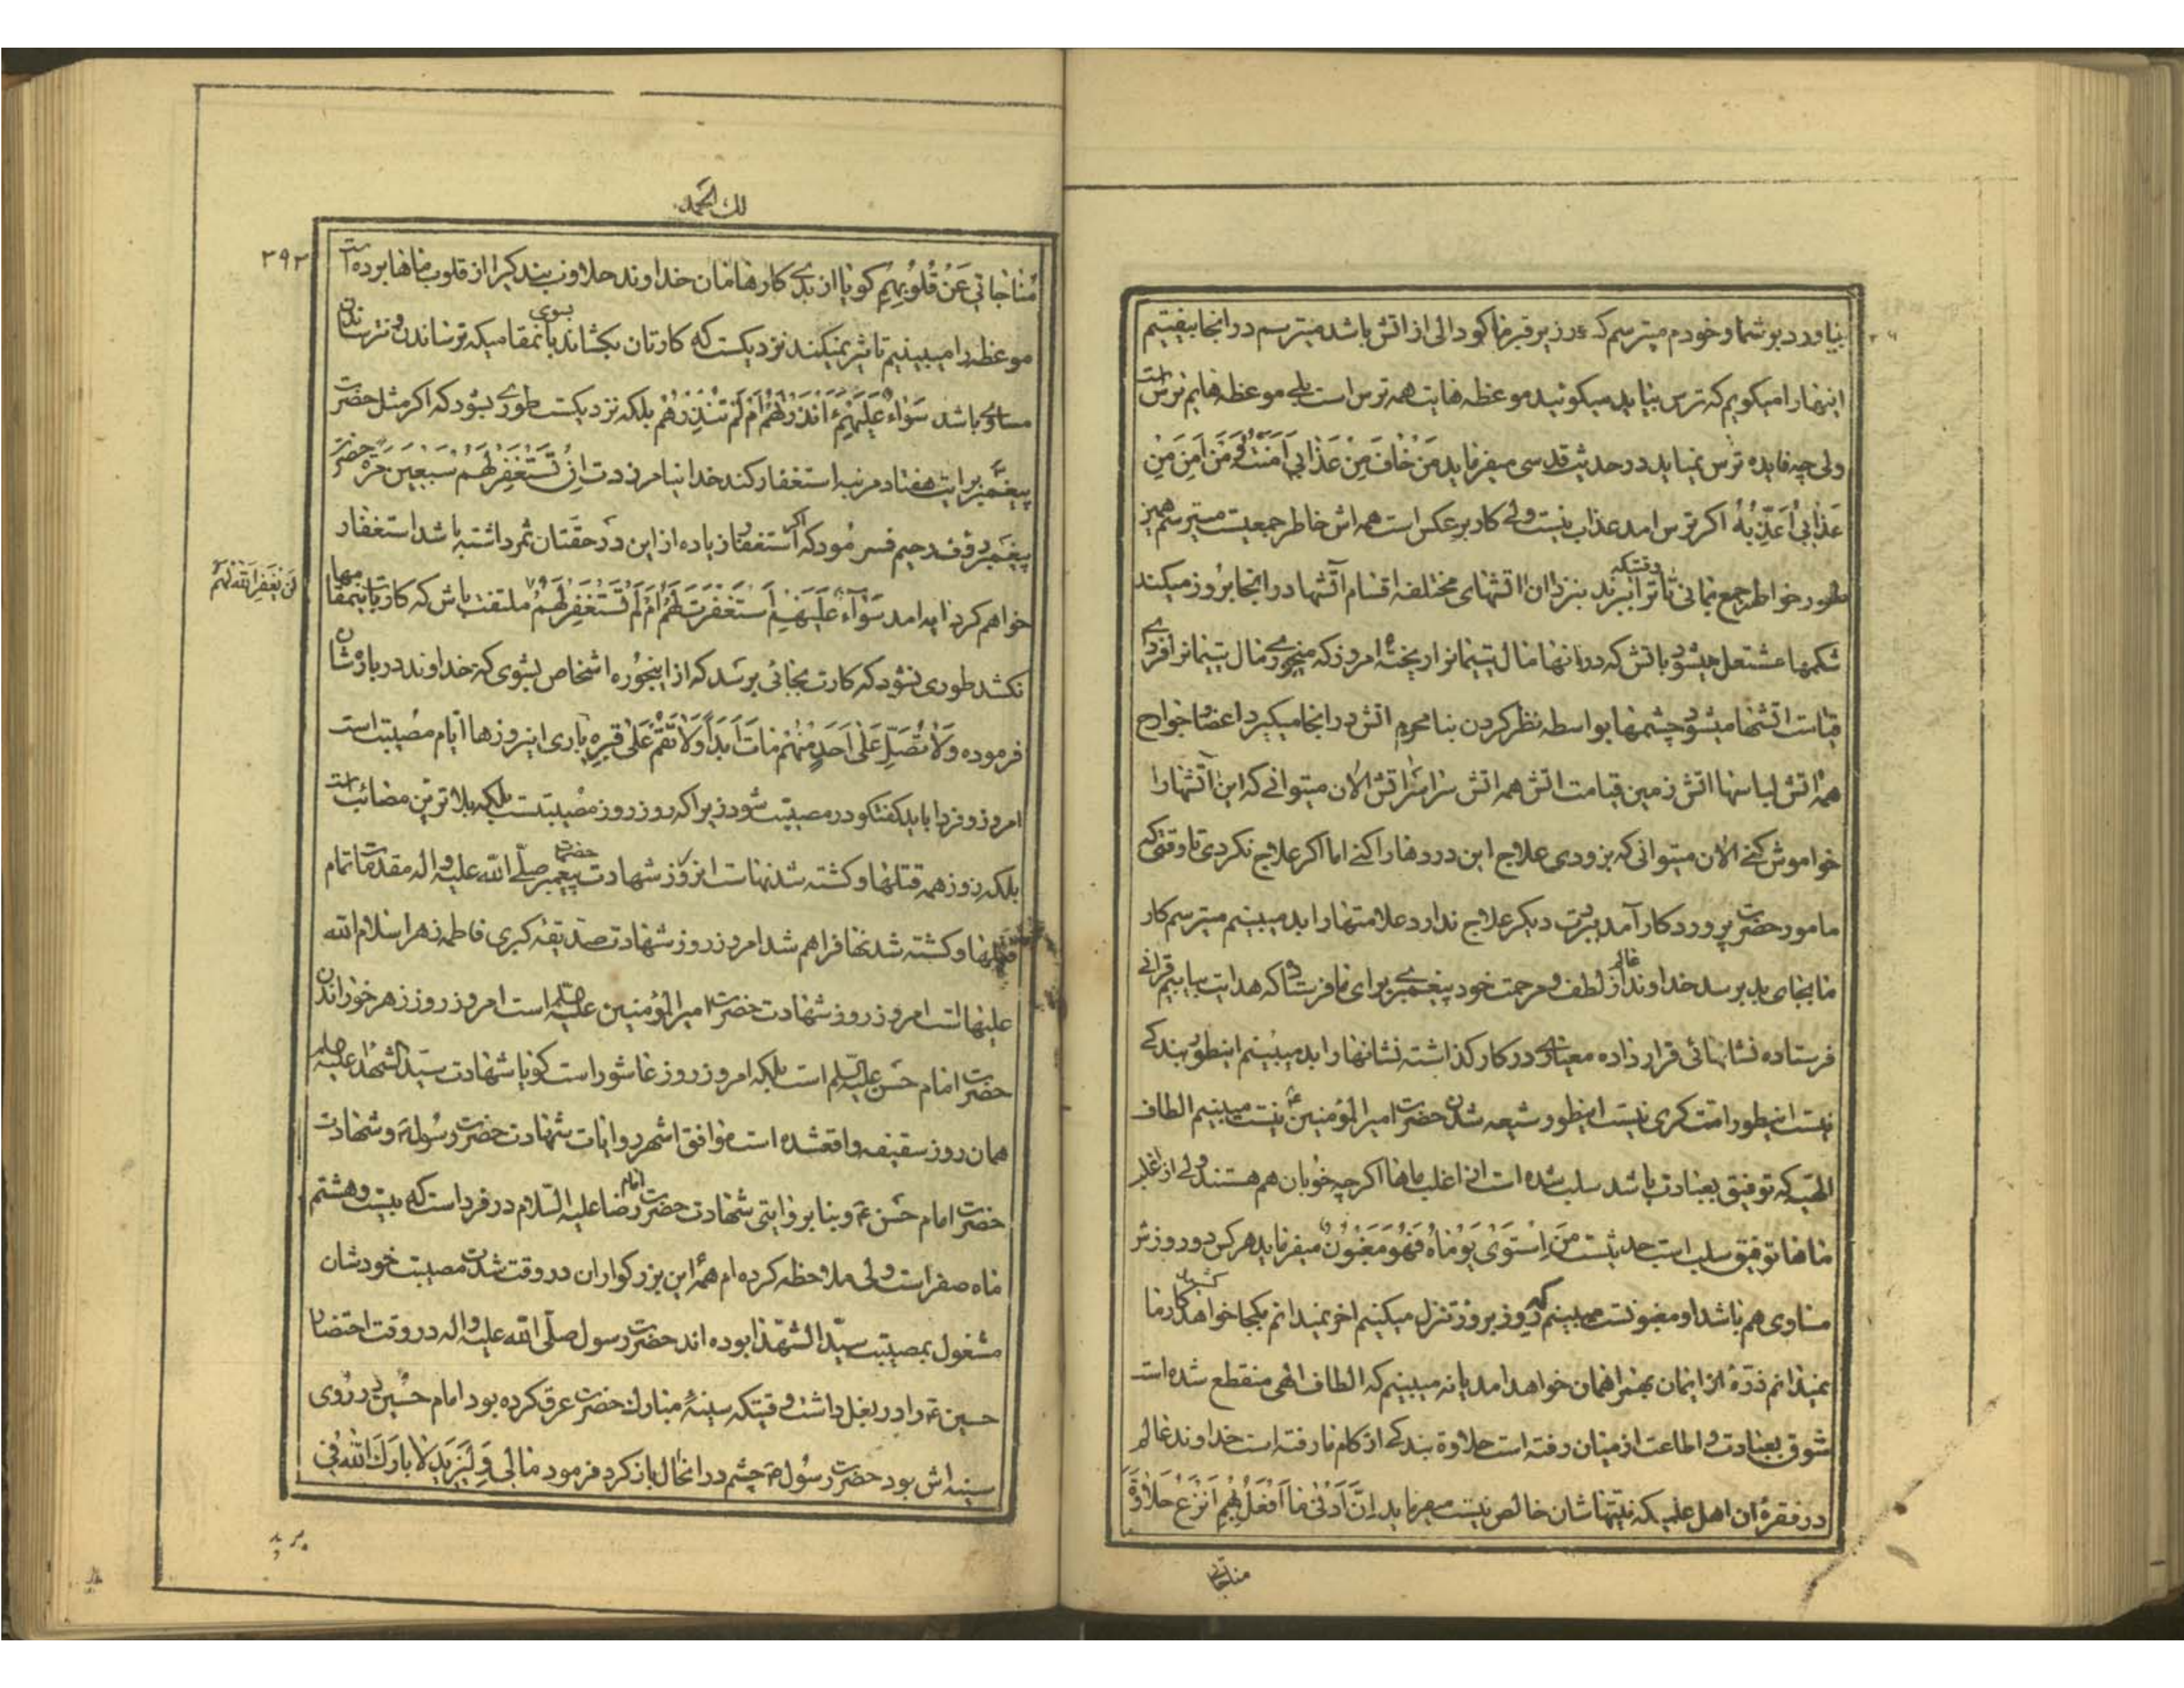 بیاورد بر شما و خودم میترسم که در زیر قبر ما کودالی از اتش باشد میترسم در انجا بیفتیم
اینها را میکویم که ترس بیاید میکوئید موعظه هایت همه ترس است بلے موعظه هایم ترس است
ولی چه فایده ترس نمیاید در حدیث قدسی میفرماید مَنْ خٰافَ مِنْ عَذٰابي آمَنْتُهُ وَمَنْ اَمِنَ مِنْ
عَذٰابي اُعَذِّبُهُ اکر ترس امد عذاب نیست ولے کار بر عکس است همه اش خاطر جمعیت میترسم همین
طور خواطر جمع بمانی تا وقتیکه ترا ببرند بنزد ان اتشهای مختلفه اقسام آتشها در انجا بروز میکند
شکمها مشتعل میشود باتش که در انها مال یتیمانرا ریخته امروز که میخورے مال یتیمانرا فردای
قیامت اتشها میشود چشمها بواسطه نظر کردن بنا محرم اتش در انجا میکیرد اعضا و جوارح
همه اتش لباسها اتش زمین قیامت اتش همه اتش سراسر اتش الان میتوانے که این آتشها را
خواموش کنے الان میتوانی که بزودی علاج این دردها را کنے اما اکر علاج نکردی تا وقتی که
مامور حضرت پروردکار آمد ببرت دیکر علاج ندارد علامتها را بد میبینم میترسم کار
ما بجای بد برسد خداوند عالم از لطف و مرحمت خود پیغمبرے برای ما فرستاد که هدایت بیابیم قرانے
فرستاده نشانهائی قرار داده معیارے در کار کذاشته نشانها را بد میبینم اینطور بندکے
نیست اینطور امت کری نیست اینطور شیعه شدن حضرت امیر المؤمنین ع نیست میبینیم الطاف
الهیه که توفیق بعبادت باشد سلب شده است از اغلب ماها اکرچه خوبان هم هستند ولے از اغلب
ماها توفیق سلب است حدیثست مَنِ اسْتَوٰى يَوْمٰاهُ فَهُوَ مَغْبُونٌ میفرماید هر کس دو روزش
مساوی هم باشد او مغبونست میبینم که روز بروز تنزل میکنیم اخر نمیدانم بکجا خواهد کشید کار ما
نمیدانم ذرهٔ از ایمان بهمراهمان خواهد امد یا نه میبینیم که الطاف الهی منقطع شده است
شوق بعبادت و اطاعت از میان رفته است حلاوة بندکے از کام ما رفته است خداوند عالم
در فقرهٔ ان اهل علمیکه نیتهاشان خالص نیست میفرماید اِنَّ اَدْنٰى مٰا اَفْعَلُ بِهِمْ اَنْزِعُ حَلٰاوَةَ
مناجاتی
لك الحمد
۳۹۳
مُنٰاجٰاتي عَنْ قُلُوبِهِمْ کویا از بدے کارهامان خداوند حلاوت بندکیرا از قلوب ماها برده است
موعظه را میبینیم تاثیر نمیکند نزدیکست که کارتان بکشاند بسوی بانمقامیکه ترساندن و نترساندن
مساوی باشد سَوٰاءٌ عَلَيْهِمْ ءَاَنْذَرْتَهُمْ اَمْ لَمْ تُنْذِرْهُمْ بلکه نزدیکست طورے بشود که اکر مثل حضرت
پیغمبر برایت هفتاد مرتبه استغفار کند خدا نیامرزدت اِنْ تَسْتَغْفِرْ لَهُمْ سَبْعِينَ مَرَّةً حضرت
لَنْ يَغْفِرَ اللهُ لَهُمْ
پیغمبر رؤف رحیم فرمود که اکر استغفار زیاده از این در حقتان ثمر داشته باشد استغفار
خواهم کرد ایه امد سَوٰآءٌ عَلَيْهِمْ اَسْتَغْفَرْتَ لَهُمْ اَمْ لَمْ تَسْتَغْفِرْ لَهُمْ ملتفت باش که کارت باینمقامها
نکشد طوری نشود که کارت بجائی برسد که از اینجوره اشخاص بشوی که خداوند در بارهٔ شان
فرموده وَلٰا تُصَلِّ عَلٰى اَحَدٍ مِنْهُمْ مٰاتَ اَبَداً وَلٰا تَقُمْ عَلٰى قَبْرِهِ باری این روزها ایام مصیبت است
امروز و فردا باید کفتکو در مصیبت شود زیرا که روز روز مصیبتست بلکه بلاترین مصائب است
بلکه روز همه قتلها و کشته شدنهاست این روز شهادت حضرت پیغمبر صلّے الله علیه و اله مقدمات تمام
قتلها و کشته شدنها فراهم شد امروز روز شهادت صدیقه کبری فاطمه زهرا سلام الله
علیها است امروز روز شهادت حضرت امیر المؤمنین علیه السلام است امروز روز زهر خوراندن
حضرت امام حسن علیه السلم است بلکه امروز روز عاشورا است کویا شهادت سیّد الشهدا علیه السلم
همان روز سقیفه واقعشده است موافق اشهر روایات شهادت حضرت رسول ص و شهادت
حضرت امام حسن ع و بنابر روایتی شهادت حضرت امام رضا علیه السّلام در فردا است که بیست و هشتم
ماه صفر است ولی ملاحظه کرده ام همهٔ این بزرکواران در وقت شدت مصیبت خودشان
مشغول بمصیبت سیّد الشهدا بوده اند حضرت رسول صلّی الله علیه و اله در وقت احتضار
حسین ع را در بغل داشت وقتیکه سینهٔ مبارك حضرت عرق کرده بود امام حسین ع در روی
سینه اش بود حضرت رسول ص چشم در انحال باز کرد فرمود مٰا لي وَلِيَزيدَ لٰا بٰارَكَ اللهُ في